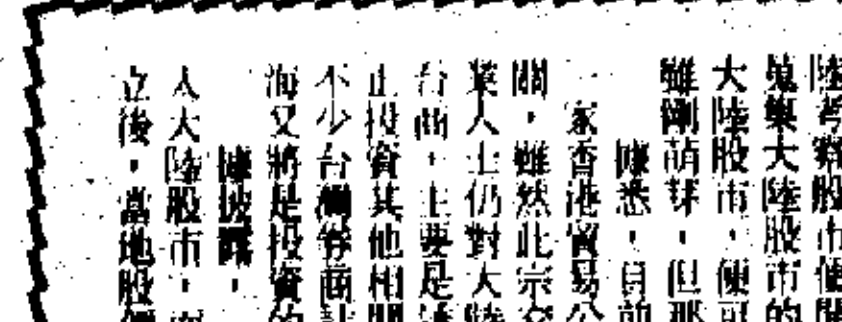 陸考察股市
蒐集大陸股市的
大陸股市，便可
雖剛萌芽，但那
據悉，目前
一家香港貿易公
關，雖然此宗交
業人士仍對大陸
台商，主要是
止投資其他相關
不少台灣券商計
海又將是投資的
據披露，
人大陸股市，
立後，當地股價